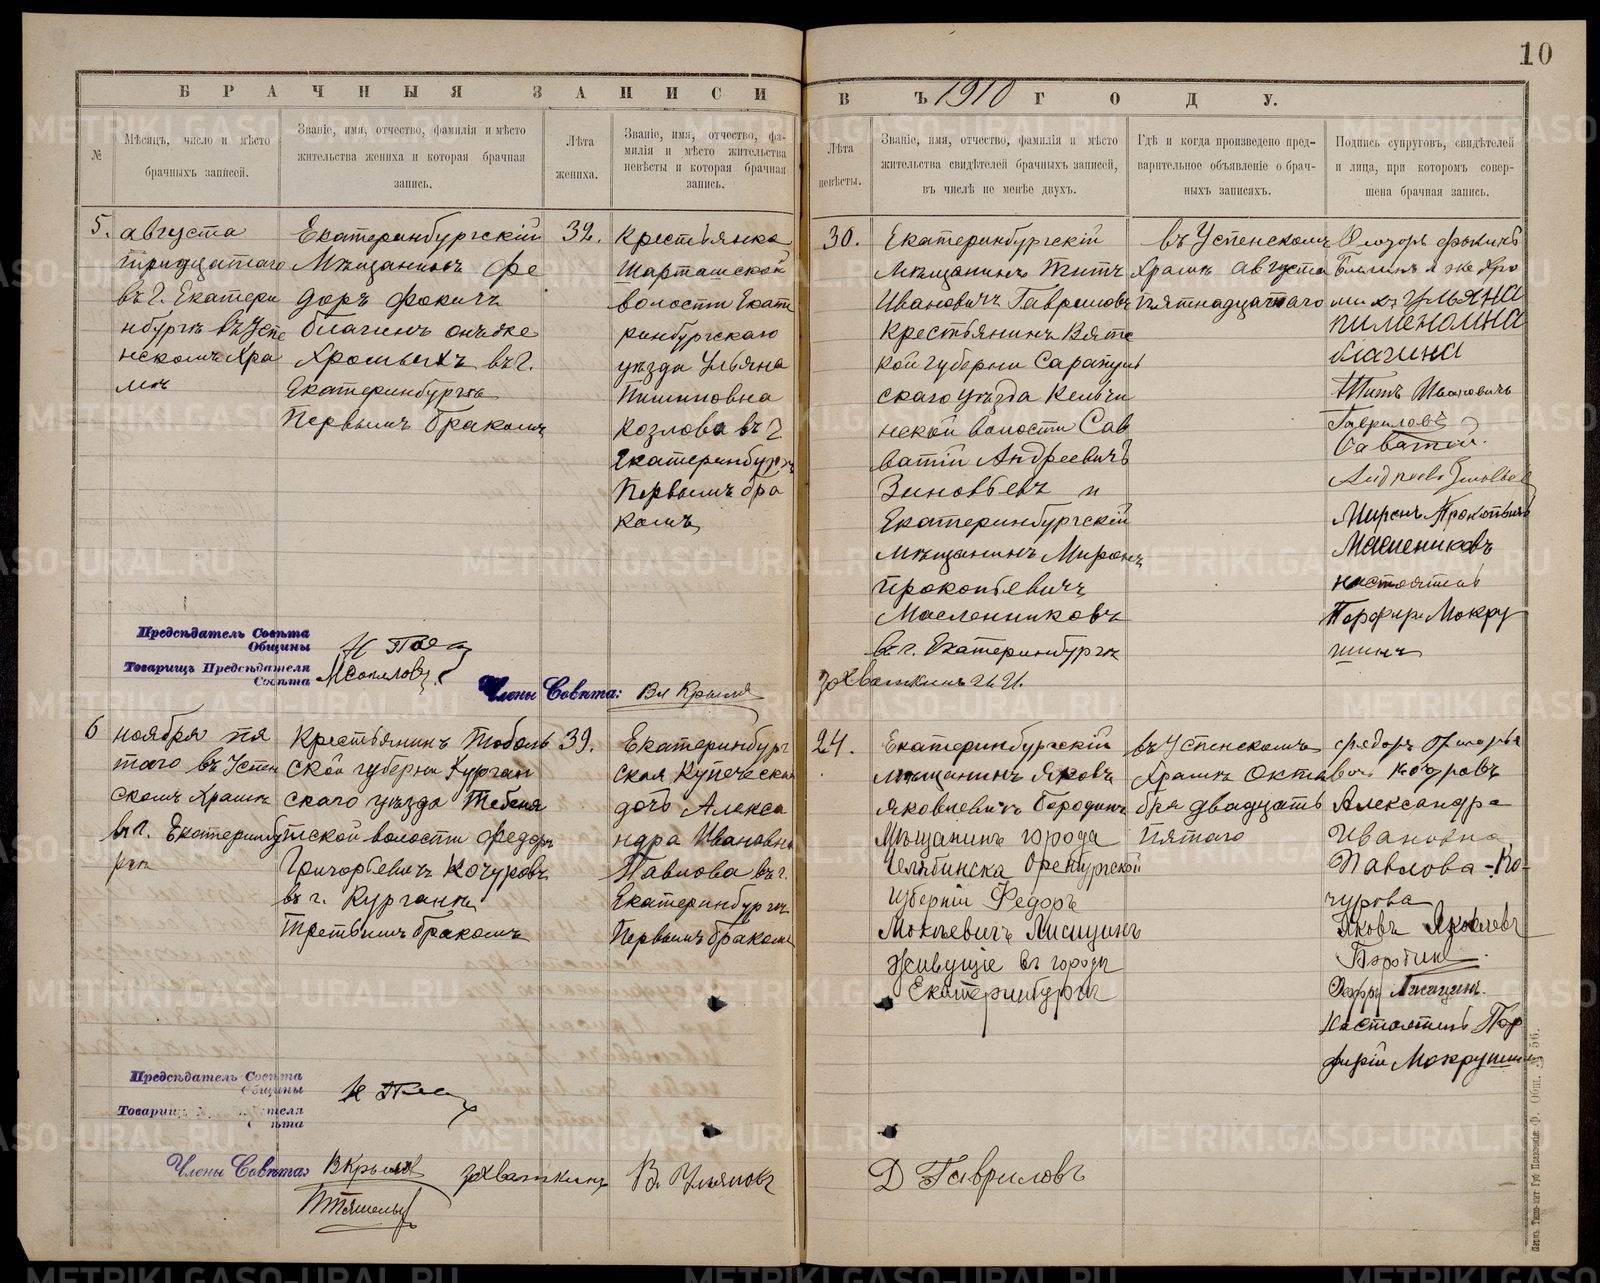 10
БРАЧНЫЯ ЗАПИСИ
ВЪ 1910 ГОДУ.
№
Мѣсяцъ, число и мѣсто
брачныхъ записей.
Званіе, имя, отчество, фамилія и мѣсто
жительства жениха и которая брачная
запись.
Лѣта
жениха.
Званіе, имя, отчество, фа-
милія и мѣсто жительства
невѣсты и которая брачная
запись.
Лѣта
невѣсты.
Званіе, имя, отчество, фамилія и мѣсто
жительства свидѣтелей брачныхъ записей,
въ числѣ не менѣе двухъ.
Гдѣ и когда произведено пред-
варительное объявленіе о брач-
ныхъ записяхъ.
Подпись супруговъ, свидѣтелей
и лица, при которомъ совер-
шена брачная запись.
5.
августа
тридцатаго
въ г. Екатери
нбургѣ въ Успе
нскомъ Хра
мѣ
Екатеринбургскій
Мѣщанинъ Фе
доръ Фокичъ
Благинъ онъ же
Хромыхъ въ г.
Екатеринбургѣ
Первымъ бракомъ
32.
Крестьянка
Шарташской
волости Екате
ринбургскаго
уѣзда Ульяна
Пименовна
Козлова въ г
Екатеринбургѣ
Первымъ бра
комъ
30.
Екатеринбургскій
Мѣщанинъ Титъ
Ивановичъ Гавриловъ
Крестьянинъ Вятс
кой губерни Сарапуль
скаго уѣзда Кельчи
нской волости Сав
ватій Андреевичъ
Зиновьевъ и
Екатеринбургскій
мѣщанинъ Миронъ
Прокопьевичъ
Масленниковъ
въ г. Екатеринбургѣ
въ Успенскомъ
Храмѣ августа
пятнадцатаго
Благинъ онъ же Хро
мыхъ Ульяна
пименовна
благина
Титъ Ивановичъ
Гавриловъ
Саватій
Миронъ Прокопьевичъ
Маслениковъ
настоятель
Порфирій Мокру
шинъ
Предсѣдатель Совѣта
Общины
Товарищъ Предсѣдателя
Совѣта
Члены Совѣта:
Захваткинъ И.И.
6
ноября пя
таго въ Успен
скомъ Храмѣ
въ г. Екатеринбу
ргѣ
Крестьянинъ Тоболь
ской губерни Курган
скаго уѣзда Тебеня
тской волости Федоръ
Григорьевичъ Кочуровъ
въ г. Курганѣ
Третьимъ бракомъ
39.
Екатеринбург
ская Купеческая
дочь Алекса
ндра Ивановна
Павлова въ г.
Екатеринбургѣ
Первымъ бракомъ
24.
Екатеринбургскій
мѣщанинъ Яковъ
Яковлевичъ Бородинъ
Мѣщанинъ города
Челябинска Оренбургской
Губерній Федоръ
Мокѣевичъ Лисицынъ
Живущіе въ городѣ
Екатеринбургѣ
въ Успенскомъ
Храмѣ Октя
бря двадцать
пятаго
Федоръ Григорье
вичъ Кочуровъ
Александра
Ивановна
Павлова-Ко-
чурова
Яковъ Яковлевъ
Бородинъ
Федоръ Лисицынъ.
Настоятель Пор
фирій Мокрушинъ
Предсѣдатель Совѣта
Общины
Члены Совѣта:
В Крыловъ
Захваткинъ
В. Ульяновъ
Д Гавриловъ
METRIKI.GASO-URAL.RU